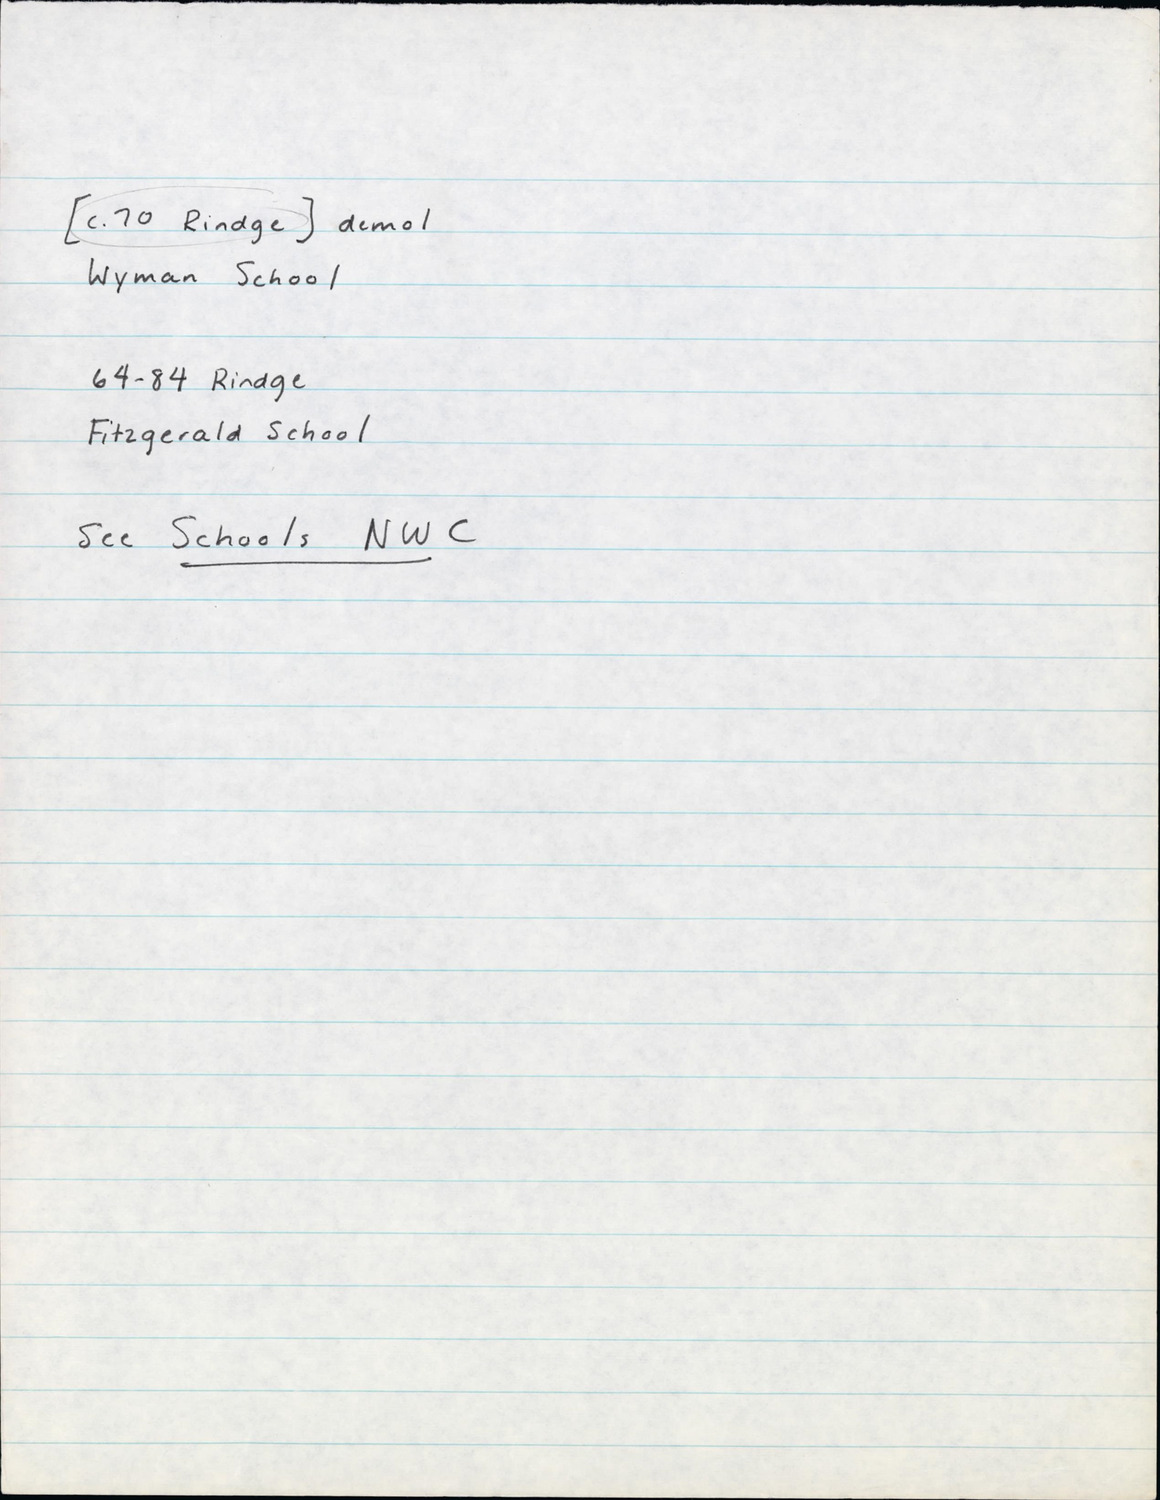 [c.70 Rindge] demol
Wyman School
64-84 Rindge
Fitzgerald School
See Schools NWC